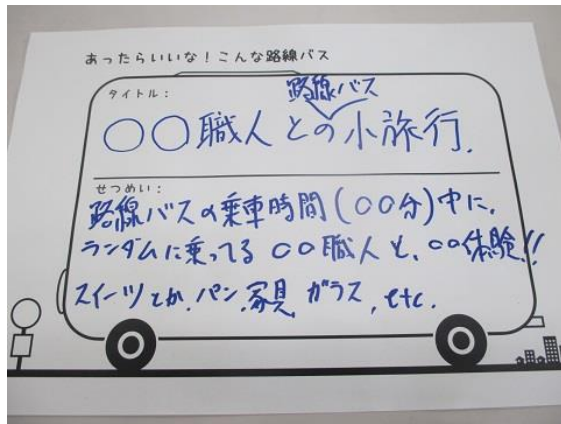 あったらいいな！こんな路線バス
タイトル：
路線バス
○○職人との小旅行.
せつめい：
路線バスの乗車時間(○○分)中に、
ランダムに乗ってる ○○職人と、○○体験!!
スイーツとか、パン、家具 ガラス, etc.